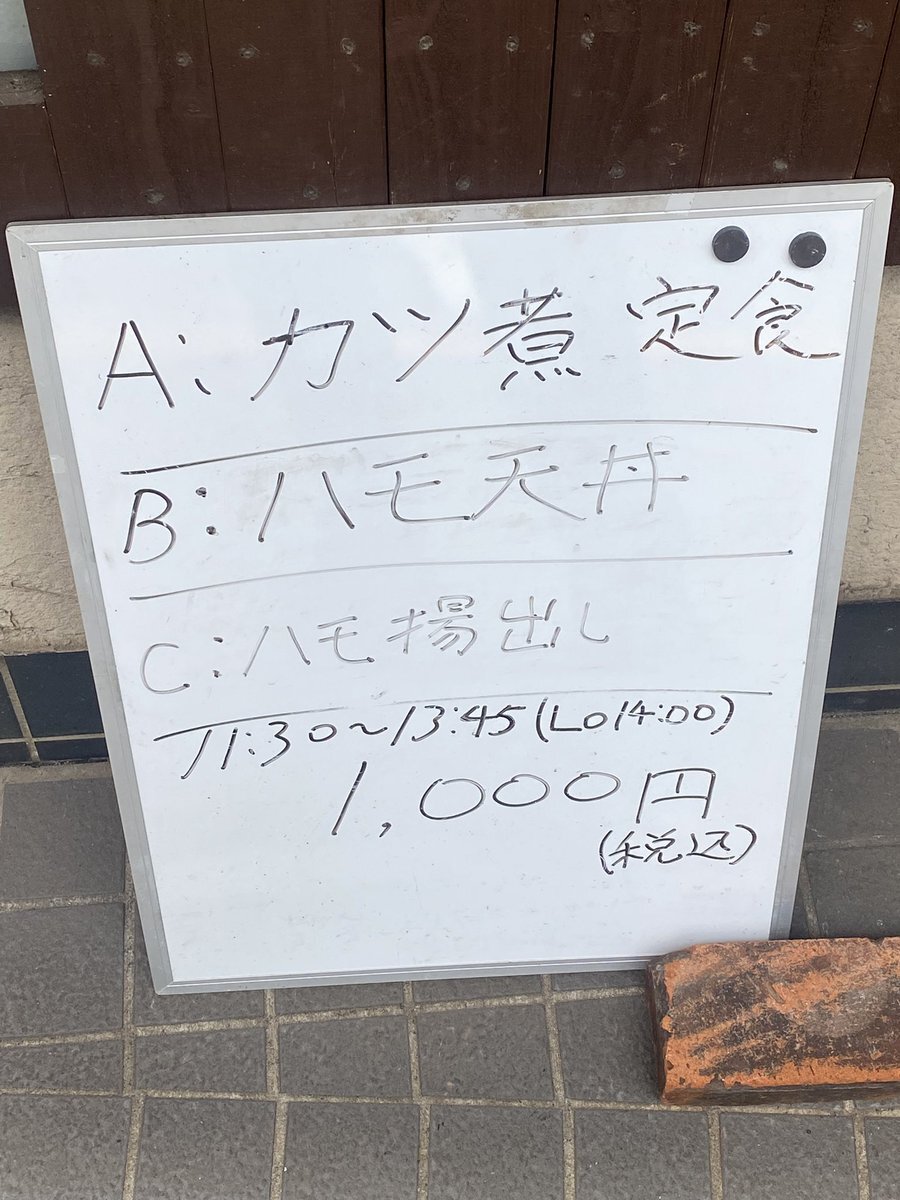 A: カツ煮 定食
B: ハモ天丼
C: ハモ揚出し
11:30〜13:45(LO14:00)
1,000円
(税込)